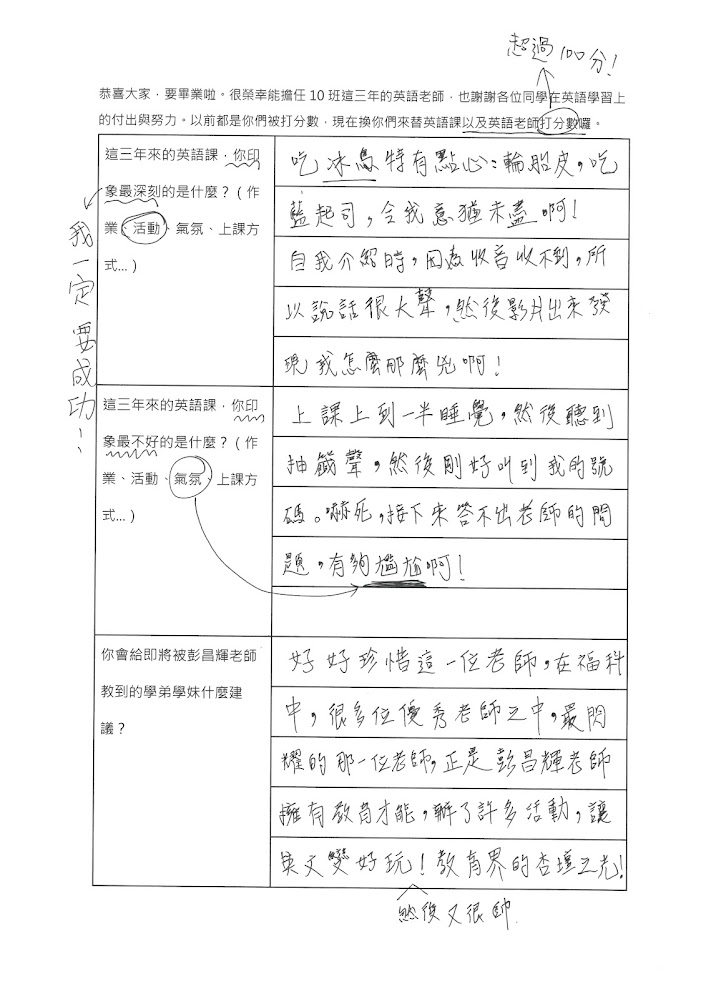 超過100分!
恭喜大家，要畢業啦。很榮幸能擔任 10 班這三年的英語老師，也謝謝各位同學在英語學習上
的付出與努力。以前都是你們被打分數，現在換你們來替英語課以及英語老師打分數囉。
這三年來的英語課，你印
象最深刻的是什麼？（作
業、活動、氣氛、上課方
式…）
我一定要成功!
吃冰島特有點心：輪胎皮，吃
藍起司，令我意猶未盡啊!
自我介紹時，因為收音收不到，所
以說話很大聲，然後影片出來發
現我怎麼那麼兇啊!
這三年來的英語課，你印
象最不好的是什麼？（作
業、活動、氣氛、上課方
式…）
上課上到一半睡覺，然後聽到
抽籤聲，然後剛好叫到我的號
碼。嚇死，接下來答不出老師的問
題，有夠尷尬啊!
你會給即將被彭昌輝老師
教到的學弟學妹什麼建
議？
好好珍惜這一位老師，在福科
中，很多位優秀老師之中，最閃
耀的那一位老師，正是彭昌輝老師
擁有教育才能，辦了許多活動，讓
英文變好玩! 教育界的杏壇之光!
然後又很帥